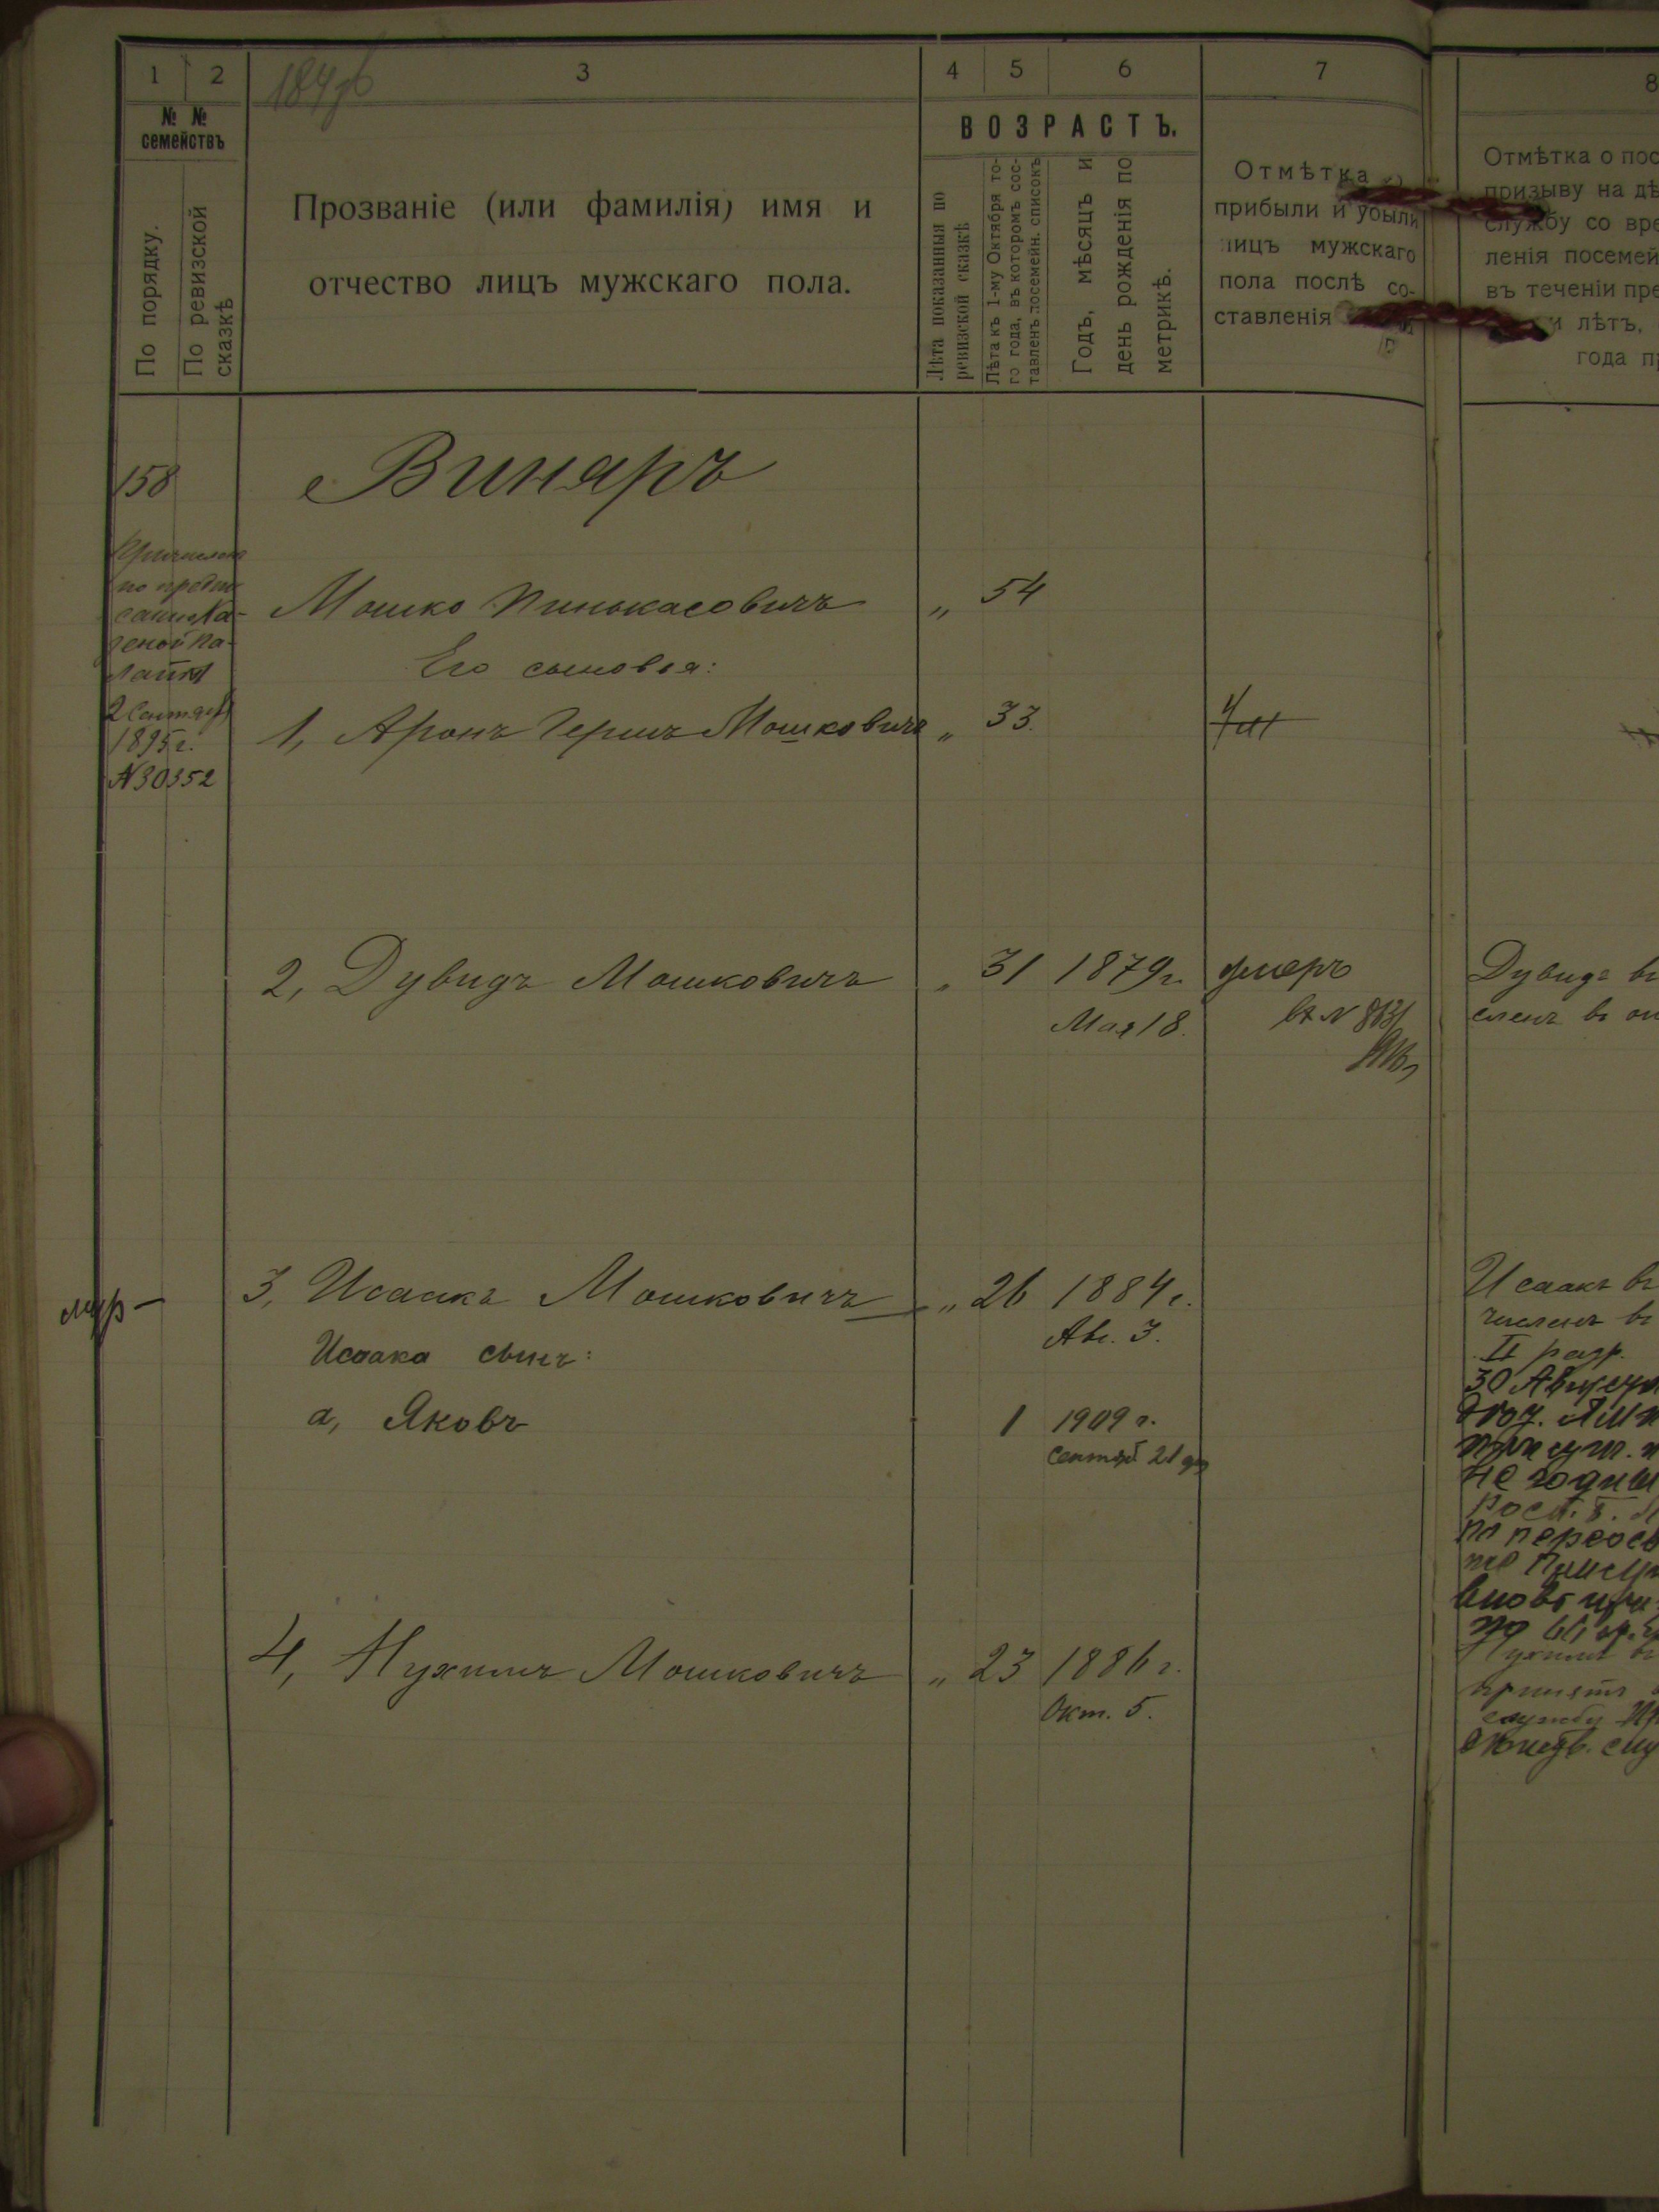 1 2 3 4 5 6 7 8
№ № семействъ
По порядку.
По ревизской сказкѣ
Прозваніе (или фамилія) имя и
отчество лицъ мужскаго пола.
ВОЗРАСТЪ.
Лѣта показанныя по
ревизской сказкѣ
Лѣта къ 1-му Октября то-
го года, въ которомъ сос-
тавленъ посемейн. списокъ
Годъ, мѣсяцъ и
день рожденія по
метрикѣ.
Отмѣтка о
прибыли и убыли
лицъ мужскаго
пола послѣ со-
ставленія
Отмѣтка о пос
призыву на дѣ
службу со вре
ленія посемей
въ теченіи пре
и лѣтъ,
года п
158
Винаръ
Причислен
по предпи
санію Ка-
зеной Па-
латы
2 Сентяб
1895 г.
№30352
Мошко Пинькасовичъ „ 54
Его сыновья:
1, Аронъ Гершъ Мошковичъ „ 33.
2, Дувидъ Мошковичъ „ 31 1879 г. умеръ
Мая 18.
Дувидъ въ
3, Исаакъ Мошковичъ „ 26 1884 г.
Авг. 3.
Исаака сынъ:
а, Яковъ 1 1909 г.
Сентяб 21 дня
Исаакъ въ
численъ въ
II разр.
30 Августа
4, Нухимъ Мошковичъ „ 23 1886 г.
Окт. 5.
принятъ
службу